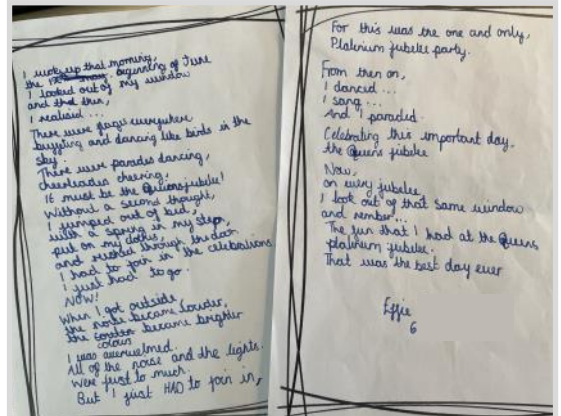 I woke up that morning,
the beginning of June
I looked out of my window
and then,
I realisd ...
There were flags everywhere
and dancing like birds in the
sky.
There were parades dancing,
cheerleades cheering,
It must be the Queens jubilee!
Without a second thought,
I jumped out of bed,
with a spring in my step,
put on my clothes,
and rushed through the door
I had to join in the celebrations
I just had to go.
NOW!
When I got outside,
the noise became louder,
the colours became brighter
I was overwelmed.
All of the noise and the lights.
Were just to much.
But I just HAD to join in,
For this was the one and only,
Platinium jubilee party.
From then on,
I danced ...
I sang ...
And I paraded.
Celebrating this important day.
the Queens jubilee
Now,
on every jubilee
I look out of that same window
and rember...
The fun that I had at the Queens
platinium jubilee.
That was the best day ever
Effie
6